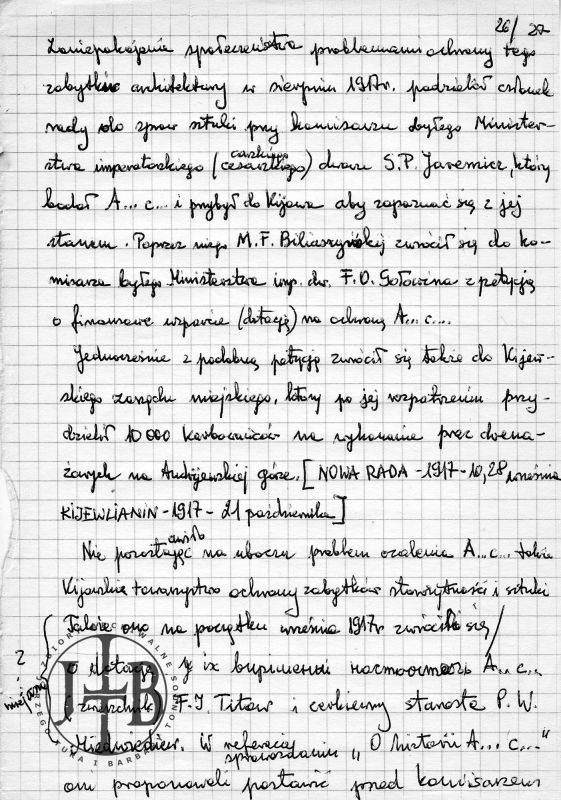 26/27
Zaniepokojenie społeczeństwa problemami ochrony tego
zabytku architektury w sierpniu 1917r. podzielał członek
rady do spraw sztuki przy komisarzu byłego Minister-
stwa imperatorskiego (cesarskiego) dworu S.P. Jaremicz, który
carskiego
badał A...c... i przybył do Kijowa aby zapoznać się z jej
stanem. Poprzez niego M.F. Biliaszywskij zwrócił się do ko-
misarza byłego Ministerstwa imp. dw. F.O. Gołowina z petycją
o finansowe wsparcie (dotację) na ochronę A...c....
Jednocześnie z podobną petycją zwrócił się także do Kijew-
skiego zarządu miejskiego, który po jej rozpatrzeniu przy-
dzielił 10 000 karbowańców na wykonanie prac drena-
żowych na Andrijewskiej górze. [NOWA RADA - 1917 - 10, 28 września
KIJEWLIANIN - 1917 - 21 października]
Nie pozostając na uboczu problem ocalenia A...c... także
Kijowskie towarzystwo ochrony zabytków starożytności i sztuki
Także ono na początku września 1917r zwróciło się
o dotację
?
niejasne
w ix вирішенні A...c...
F.I. Titow i cerkiewny starosta P.W.
Miedwiediew. W referacie „O historii A...c..."
sprawozdaniu
oni proponowali postawić przed komisarzem
JHB